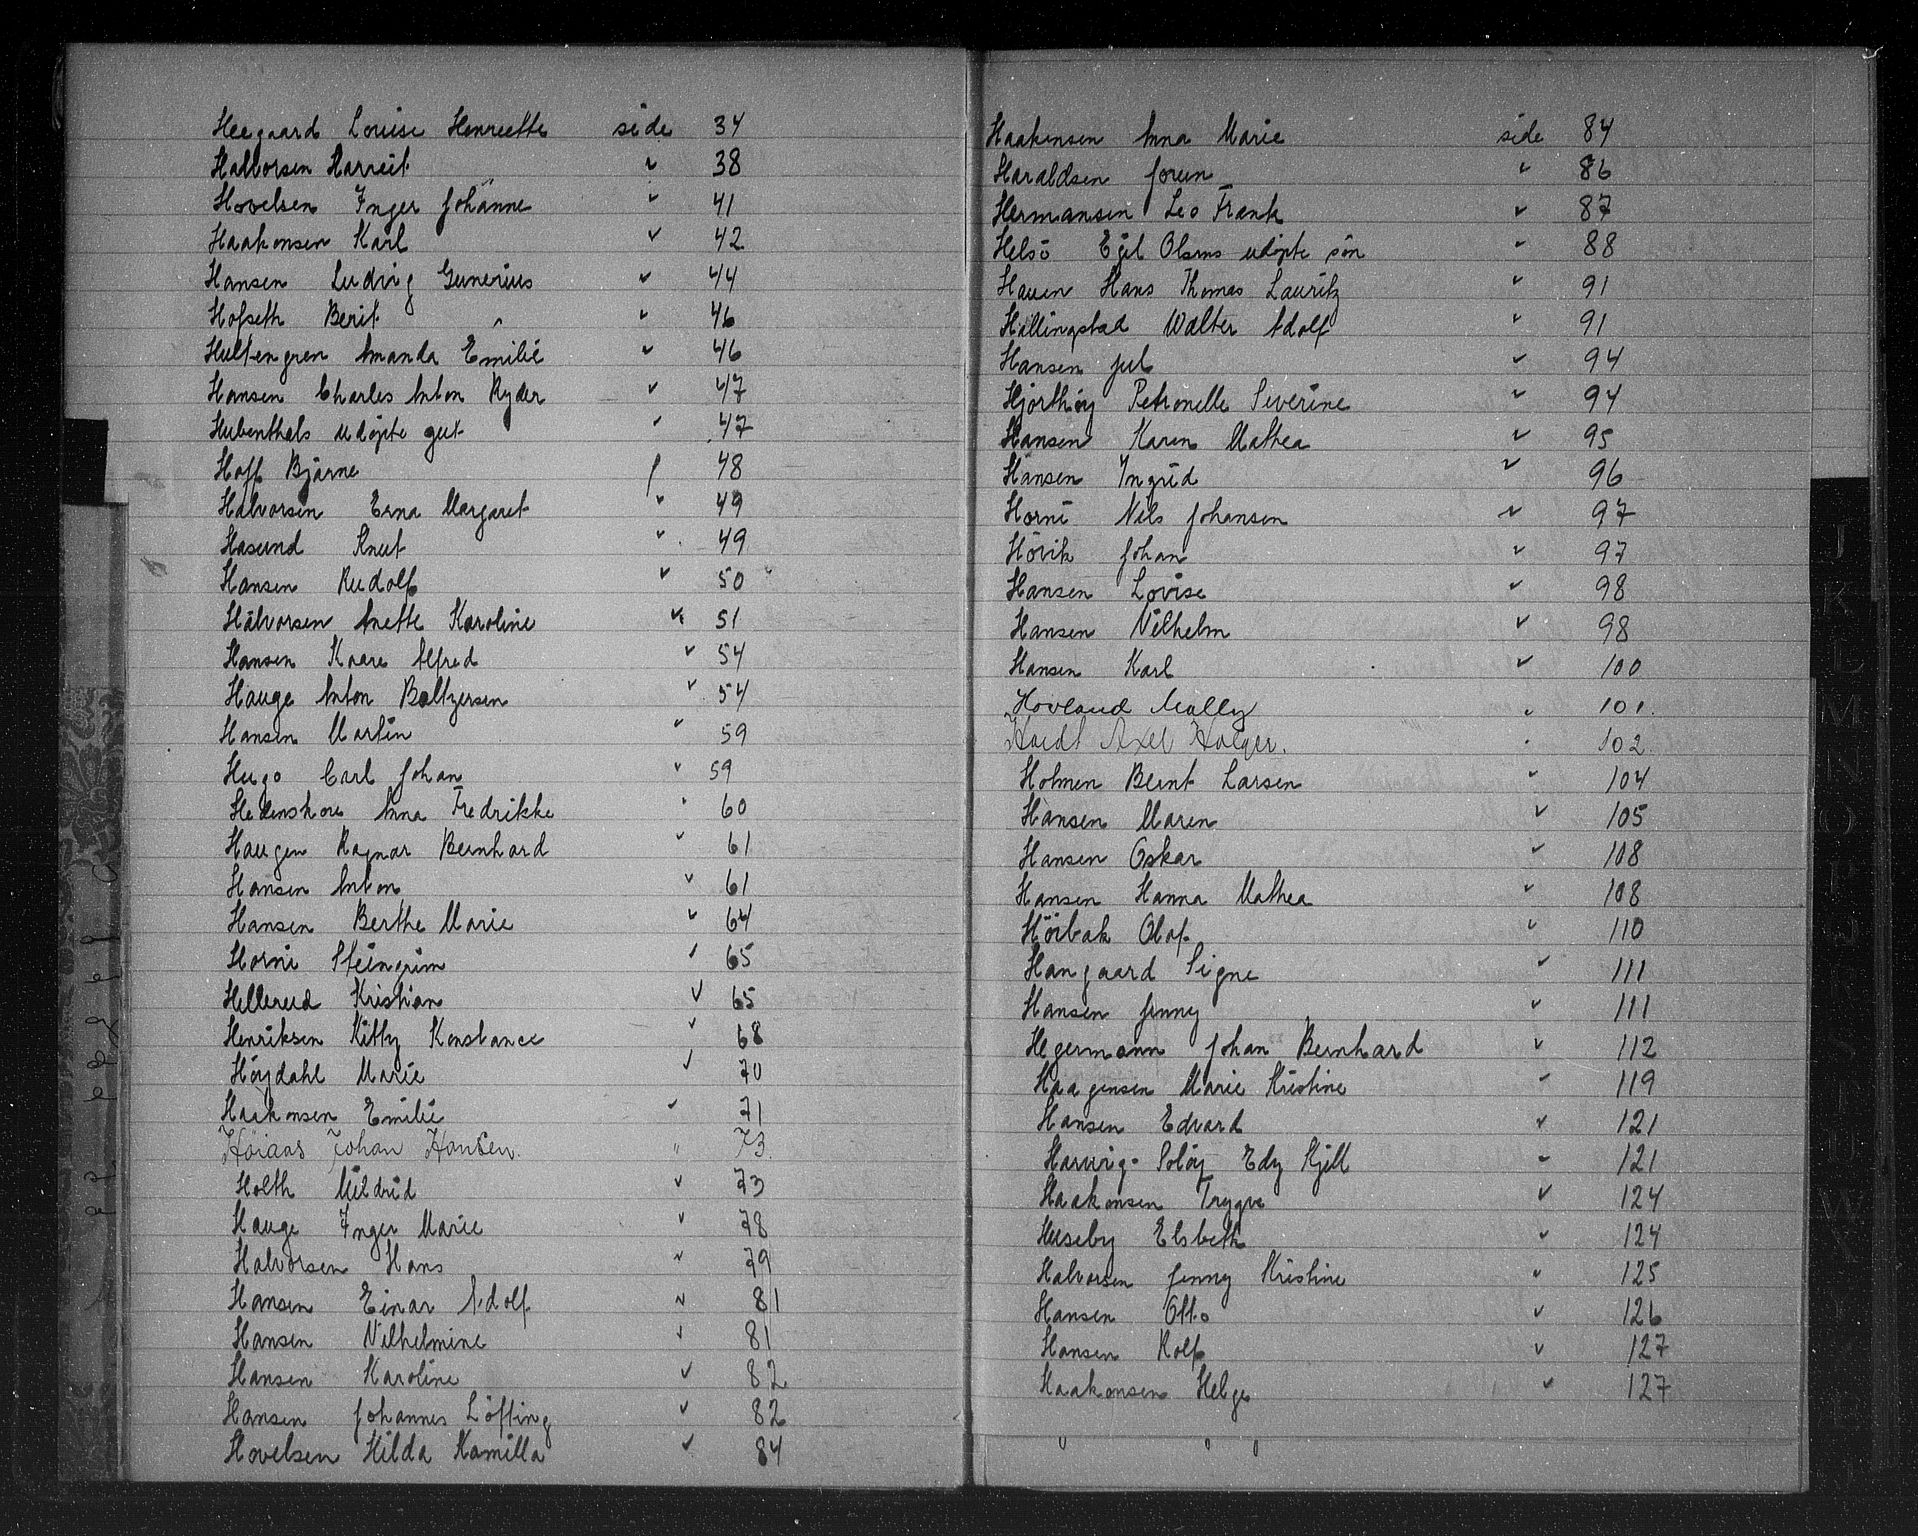 Heegaard Louise Henriette side 34
Halvorsen Harriet " 38
Hovelsen Inger Johanne " 41
Haakonsen Karl " 42
Hansen Ludvig Gunerius " 44
Hofseth Berit " 46
Hultengren Amanda Emilie " 46
Hansen Charles Anton Ryder " 47
Hubenthals udøpte gut " 47
Hoff Bjarne " 48
Halvorsen Erna Margaret " 49
Hasund Knut " 49
Hansen Rudolf " 50
Halvorsen Anette Karoline " 51
Hansen Kaare Alfred " 54
Hauge Anton Baltzersen " 54
Hansen Martin " 59
Hugo Carl Johan " 59
Hedenskou Anna Fredrikke " 60
Haugen Ragnar Bernhard " 61
Hansen Anton " 61
Hansen Berthe Marie " 64
Horni Steingrim " 65
Hellerud Kristian " 65
Henriksen Kitty Konstance " 68
Høydahl Marie " 70
Haakonsen Emilie " 71
Höiaas Johan Hansen. " 73
Holth Mildrid " 73
Hauge Inger Marie " 78
Halvorsen Hans " 79
Hansen Einar Adolf " 81
Hansen Vilhelmine " 81
Hansen Karoline " 82
Hansen Johannes Löffing " 82
Hovelsen Hilda Kamilla " 84
Haakensen Anna Marie side 84
Haraldsen Jorun " 86
Hermansen Leo Frank " 87
Helsö Egil Olsens udøpte søn " 88
Hauen Hans Thomas Lauritz " 91
Hallingstad Walter Adolf " 91
Hansen Jul " 94
Hjorthøy Petronelle Severine " 94
Hansen Karen Mathea " 95
Hansen Ingrid " 96
Horni Nils Johansen " 97
Hövik Johan " 97
Hansen Lovise " 98
Hansen Vilhelm " 98
Hansen Karl " 100
Hovland Mally " 101.
Axel Holger. " 102.
Holmen Bernt Larsen " 104
Hansen Maren " 105
Hansen Oskar " 108
Hansen Hanna Mathea " 108
Hörbak Olaf " 110
Hangaard Signe " 111
Hansen Jenny " 111
Hegermann Johan Bernhard " 112
Haagensen Marie Kristine " 119
Hansen Edvard " 121
Harwig-Soløy Edy Kjell " 121
Haakonsen Trygve " 124
Huseby Elsbeth " 124
Halvorsen Jenny Kristine " 125
Hansen Otto " 126
Hansen Rolf " 127
Haakonsen Helge " 127
J
K
L
M
N
O
P